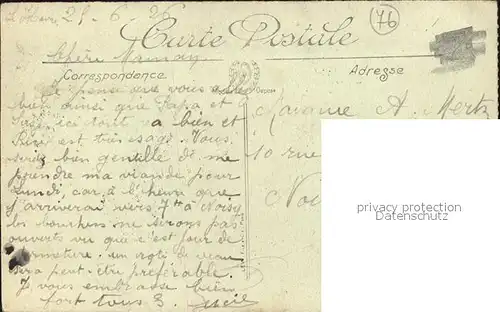 Le Havre 29-6-26
76
Carte Postale
Chère Maman
Correspondance
Adresse
Je pense que vous allez
bien ainsi que Papa et
ici tout va bien et
est très sage. Vous
seriez bien gentille de me
prendre ma viande pour
lundi, car, à l'heure que
j'arriverai vers 7h à Noisy
les bouchers ne seront pas
ouverts vu que c'est jour de
fermeture. un roti de veau
sera peut-être préférable.
Je vous embrasse bien
fort tous 3.
Madame A. Mertz
10 rue
privacy protection
Datenschutz